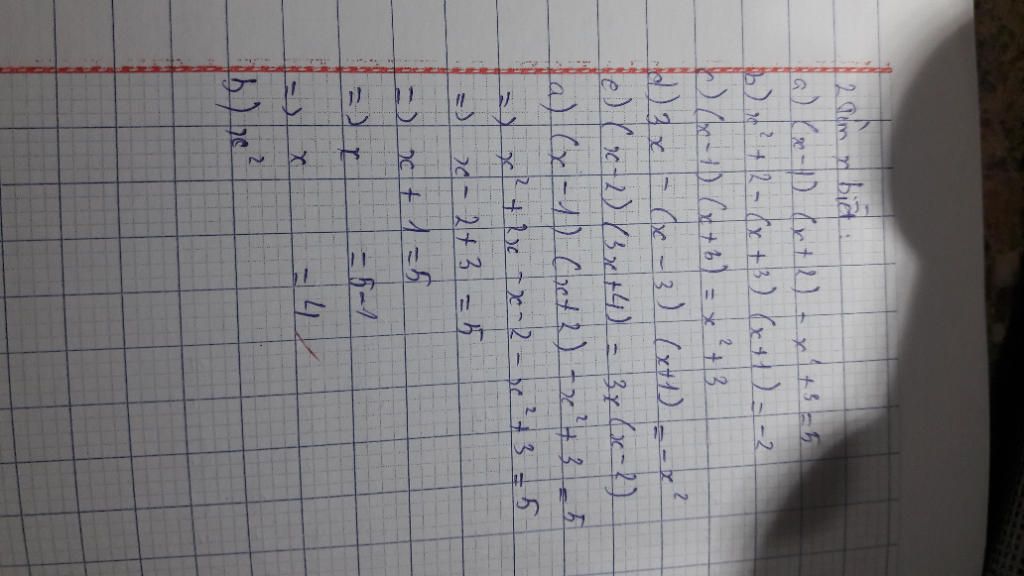 2 Tìm x biết:
a) (x-1) (x+2) - x² + 3 = 5
b) x² + 2 - (x+3) (x+1) = -2
c) (x-1) (x+3) = x² + 3
d) 3x - (x-3) (x+1) = -x²
e) (x-2) (3x+4) = 3x (x-2)
a) (x-1) (x+2) - x² + 3 = 5
=> x² + 2x - x - 2 - x² + 3 = 5
=> x - 2 + 3 = 5
=> x + 1 = 5
=> x = 5-1
=> x = 4
b) x²